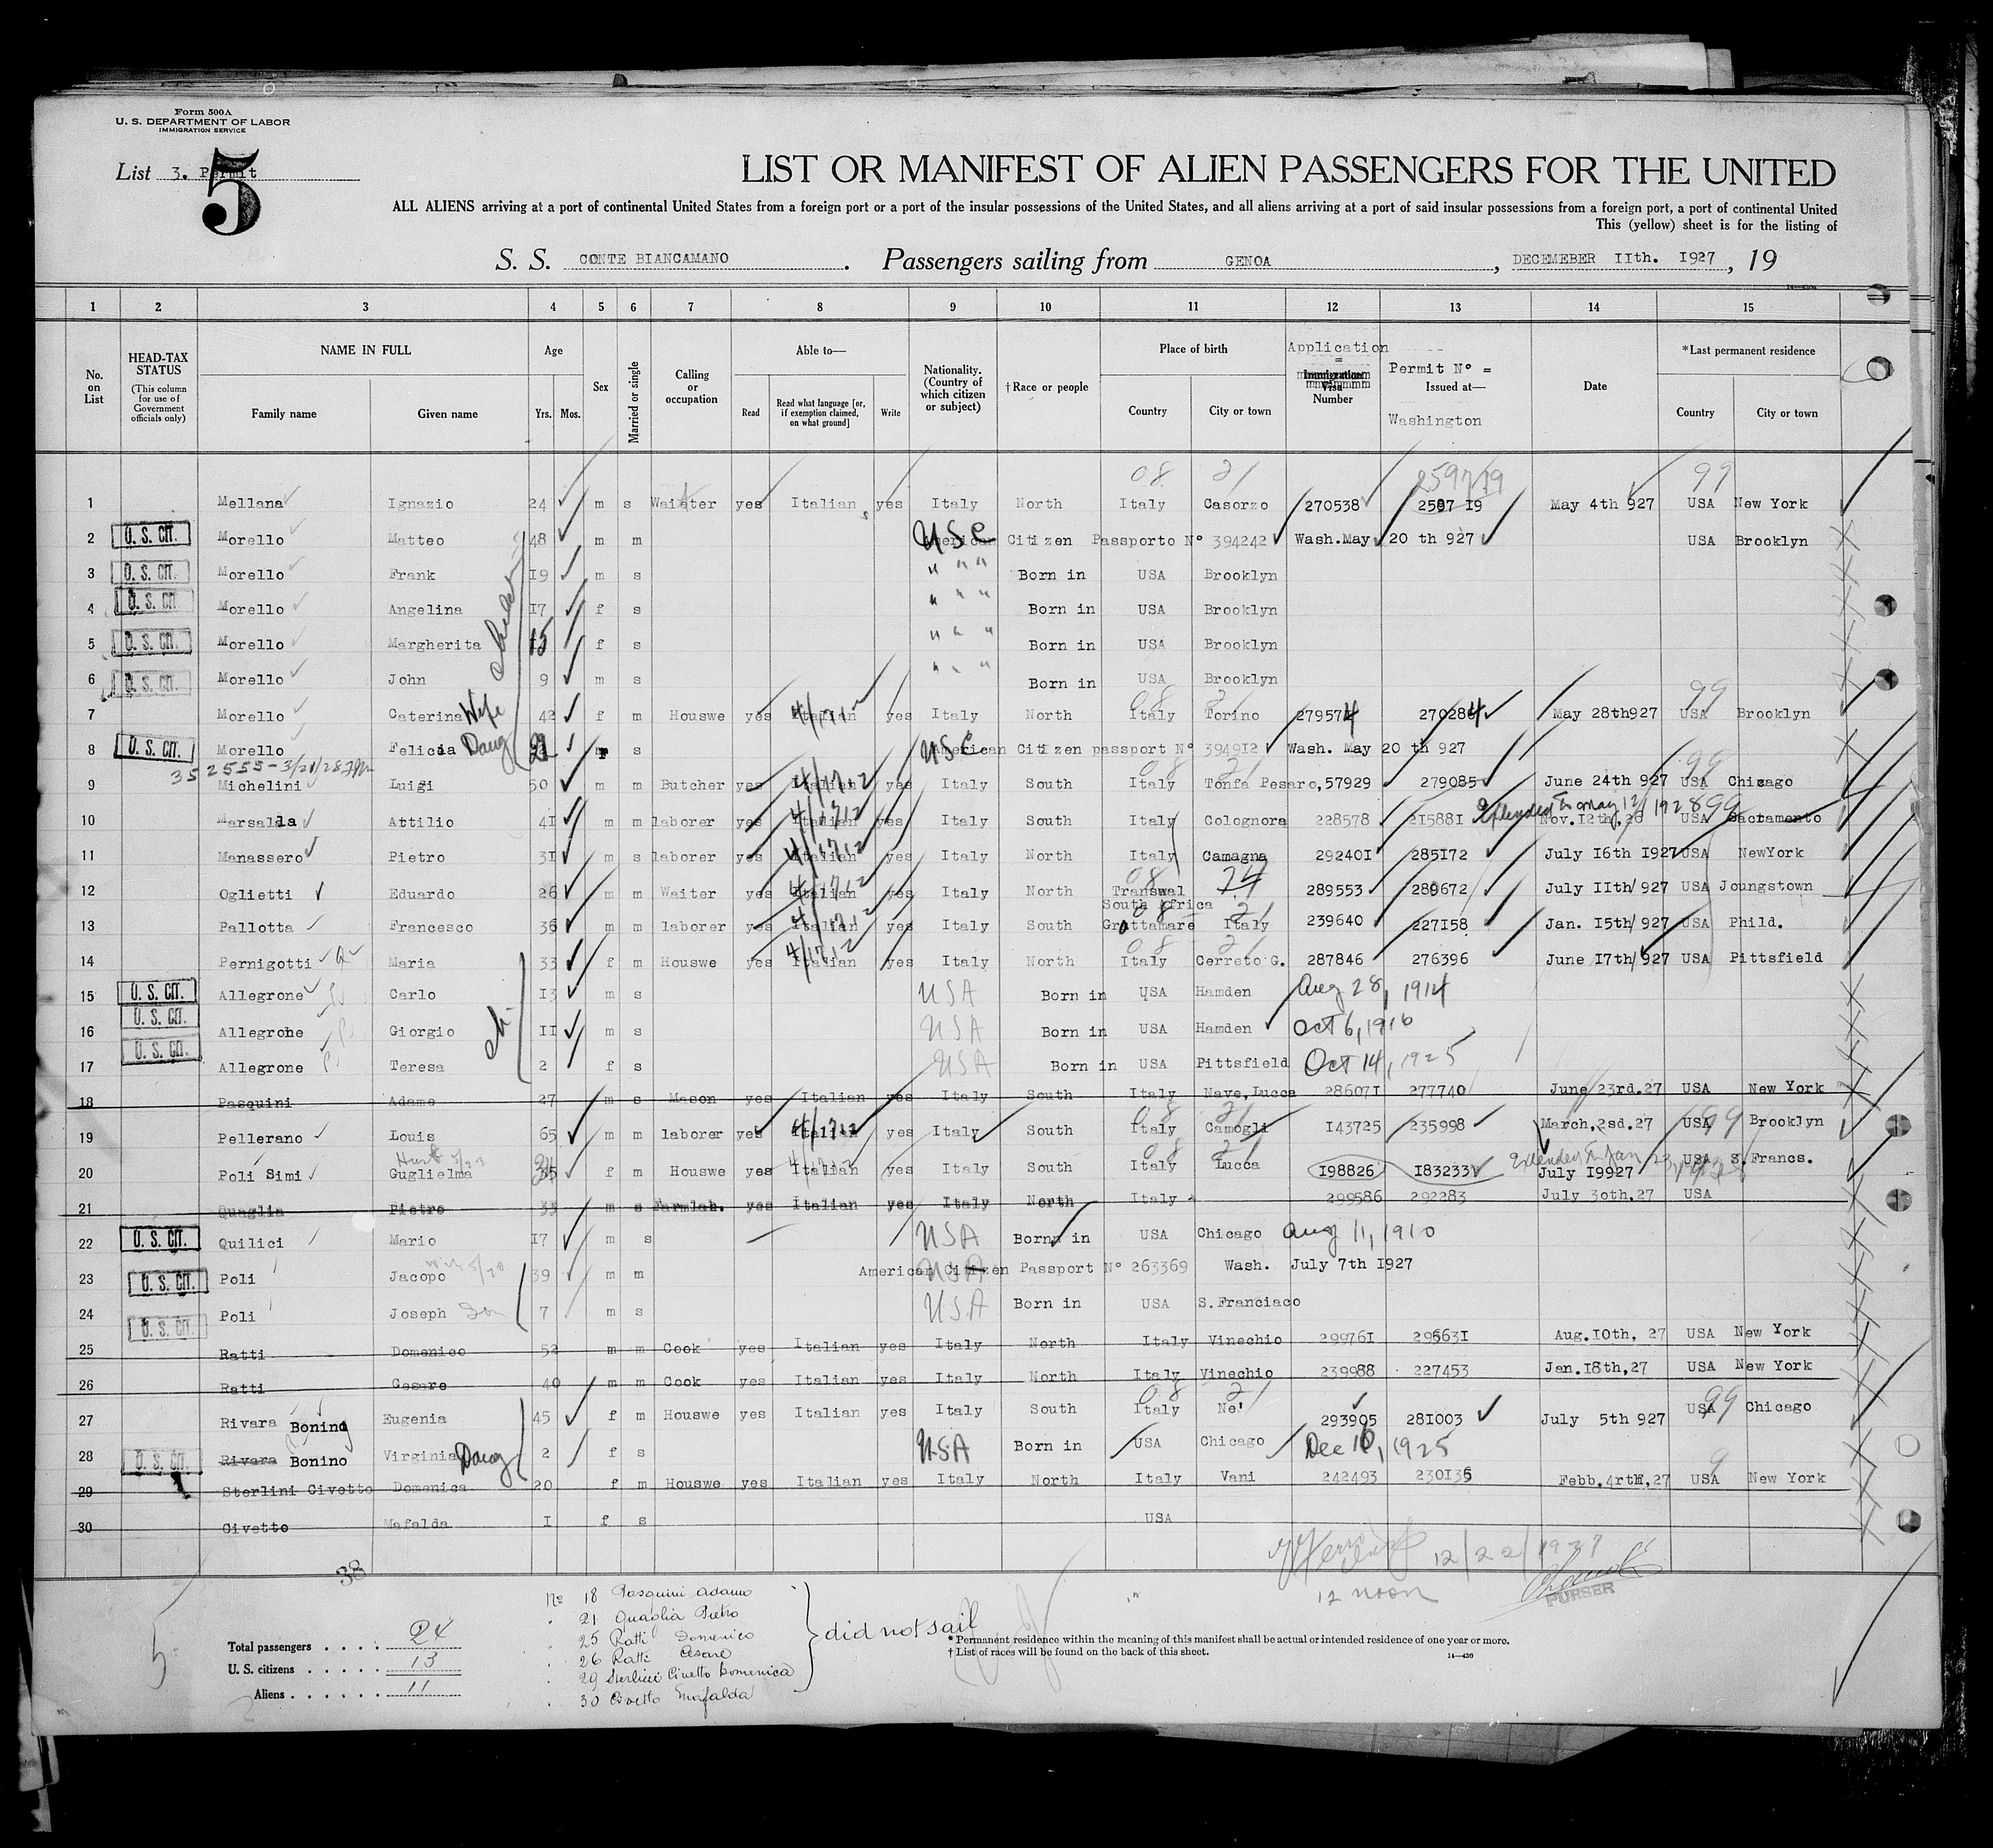 Form 500A
U. S. DEPARTMENT OF LABOR
IMMIGRATION SERVICE
List 3. Permit
5
LIST OR MANIFEST OF ALIEN PASSENGERS FOR THE UNITED
ALL ALIENS arriving at a port of continental United States from a foreign port or a port of the insular possessions of the United States, and all aliens arriving at a port of said insular possessions from a foreign port, a port of continental United
This (yellow) sheet is for the listing of
S. S. CONTE BIANCAMANO. Passengers sailing from GENOA, DECEMEBER IIth. I927, 19
1 2 3 4 5 6 7 8 9 10 11 12 13 14 15
No. on List
HEAD-TAX STATUS (This column for use of Government officials only)
NAME IN FULL
Family name Given name
Age
Yrs. Mos.
Sex
Married or single
Calling or occupation
Able to—
Read Read what language [or, if exemption claimed, on what ground] Write
Nationality. (Country of which citizen or subject)
†Race or people
Place of birth
Country City or town
Application = Visa Number
Permit Nº = Issued at— Washington
Date
*Last permanent residence
Country City or town
08 21 259719 99
1 Mellana Ignazio 24 m s Waiter yes Italian yes Italy North Italy Casorzo 270538 2597 I9 May 4th 927 USA New York
2 U. S. CIT. Morello Matteo 48 m m USC American Citizen Passporto Nº 394242 Wash. May 20 th 927 USA Brooklyn
3 U. S. CIT. Morello Frank I9 m s " " " Born in USA Brooklyn
4 U. S. CIT. Morello Angelina I7 f s " " " Born in USA Brooklyn
5 U. S. CIT. Morello Margherita 15 f s " " " Born in USA Brooklyn
6 U. S. CIT. Morello John 9 m s " " " Born in USA Brooklyn
7 Morello Caterina Wife 42 f m Houswe yes Italian yes Italy North Italy Torino 279574 270284 May 28th927 USA Brooklyn
8 U. S. CIT. Morello Felicia Daug s USC American Citizen passport Nº 394912 Wash. May 20 th 927
352555-3/21/28
9 Michelini Luigi 50 m m Butcher yes Italian yes Italy South Italy Tonfa Pesaro, 57929 279085 June 24th 927 USA Chicago
Extended to May 12/1928 99
10 Marsalla Attilio 4I m m laborer yes Italian yes Italy South Italy Colognora 228578 2I588I Nov. I2th, 26 USA Sacramento
11 Manassero Pietro 3I m s laborer yes Italian yes Italy North Italy Camagna 29240I 285I72 July I6th I927 USA NewYork
12 Oglietti Eduardo 26 m m Waiter yes Italian yes Italy North Transwal South Africa 289553 280672 July IIth/ 927 USA Joungstown
13 Pallotta Francesco 36 m m laborer yes Italian yes Italy South Grottamare Italy 239640 227I58 Jan. I5th/ 927 USA Phild.
14 Pernigotti Maria 33 f m Houswe yes Italian yes Italy North Italy Cerreto G. 287846 276396 June I7th/ 927 USA Pittsfield
15 U. S. CIT. Allegrone Carlo I3 m s USA Born in USA Hamden Aug 28, 1914
16 U. S. CIT. Allegrone Giorgio II m s USA Born in USA Hamden Oct 6, 1916
17 U. S. CIT. Allegrone Teresa 2 f s USA Born in USA Pittsfield Oct 14, 1925
18 Pasquini Adamo 27 m s Mason yes Italian yes Italy South Italy Nave, Lucca 28607I 277740 June 23rd. 27 USA New York
19 Pellerano Louis 65 m m laborer yes Italian yes Italy South Italy Camogli I43725 235998 March, 2sd. 27 USA Brooklyn
20 Poli Simi Guglielma f m Houswe yes Italian yes Italy South Italy Lucca I98826 I83233 July I9927 USA S. Francs.
21 Quaglia Pietro 33 m s Farmlab. yes Italian yes Italy North Italy 299586 292283 July 30th. 27 USA
22 U. S. CIT. Quilici Mario I7 m s USA Born in USA Chicago Aug 11, 1910
23 U. S. CIT. Poli Jacopo 39 m m USA American Citizen Passport Nº 263369 Wash. July 7th I927
24 U. S. CIT. Poli Joseph Son 7 m s USA Born in USA S. Franciaco
25 Ratti Domenico 52 m m Cook yes Italian yes Italy North Italy Vinechio 29976I 29563I Aug. I0th, 27 USA New York
26 Ratti Cesare 40 m m Cook yes Italian yes Italy North Italy Vinechio 239988 227453 Jan. I8th, 27 USA New York
27 Rivara Bonino Eugenia 45 f m Houswe yes Italian yes Italy South Italy Ne' 293905 28I003 July 5th 927 USA Chicago
28 U. S. CIT. Rivara Bonino Virginia Daug 2 f s USA Born in USA Chicago Dec 16, 1925
29 Sterlini Civetto Domenica 20 f m Houswe yes Italian yes Italy North Italy Vani 242493 230I35 Febb. 4rth, 27 USA New York
30 Civetto Mafalda I f s USA
12/22/1927
12 noon
PURSER
38
No 18 Pasquini Adamo
21 Quaglia Pietro
25 Ratti Domenico
26 Ratti Cesare
29 Sterlini Civetto Domenica
30 Civetto Mafalda
did not sail
Total passengers 24
U. S. citizens 13
Aliens 11
5
* Permanent residence within the meaning of this manifest shall be actual or intended residence of one year or more.
† List of races will be found on the back of this sheet.
14—430